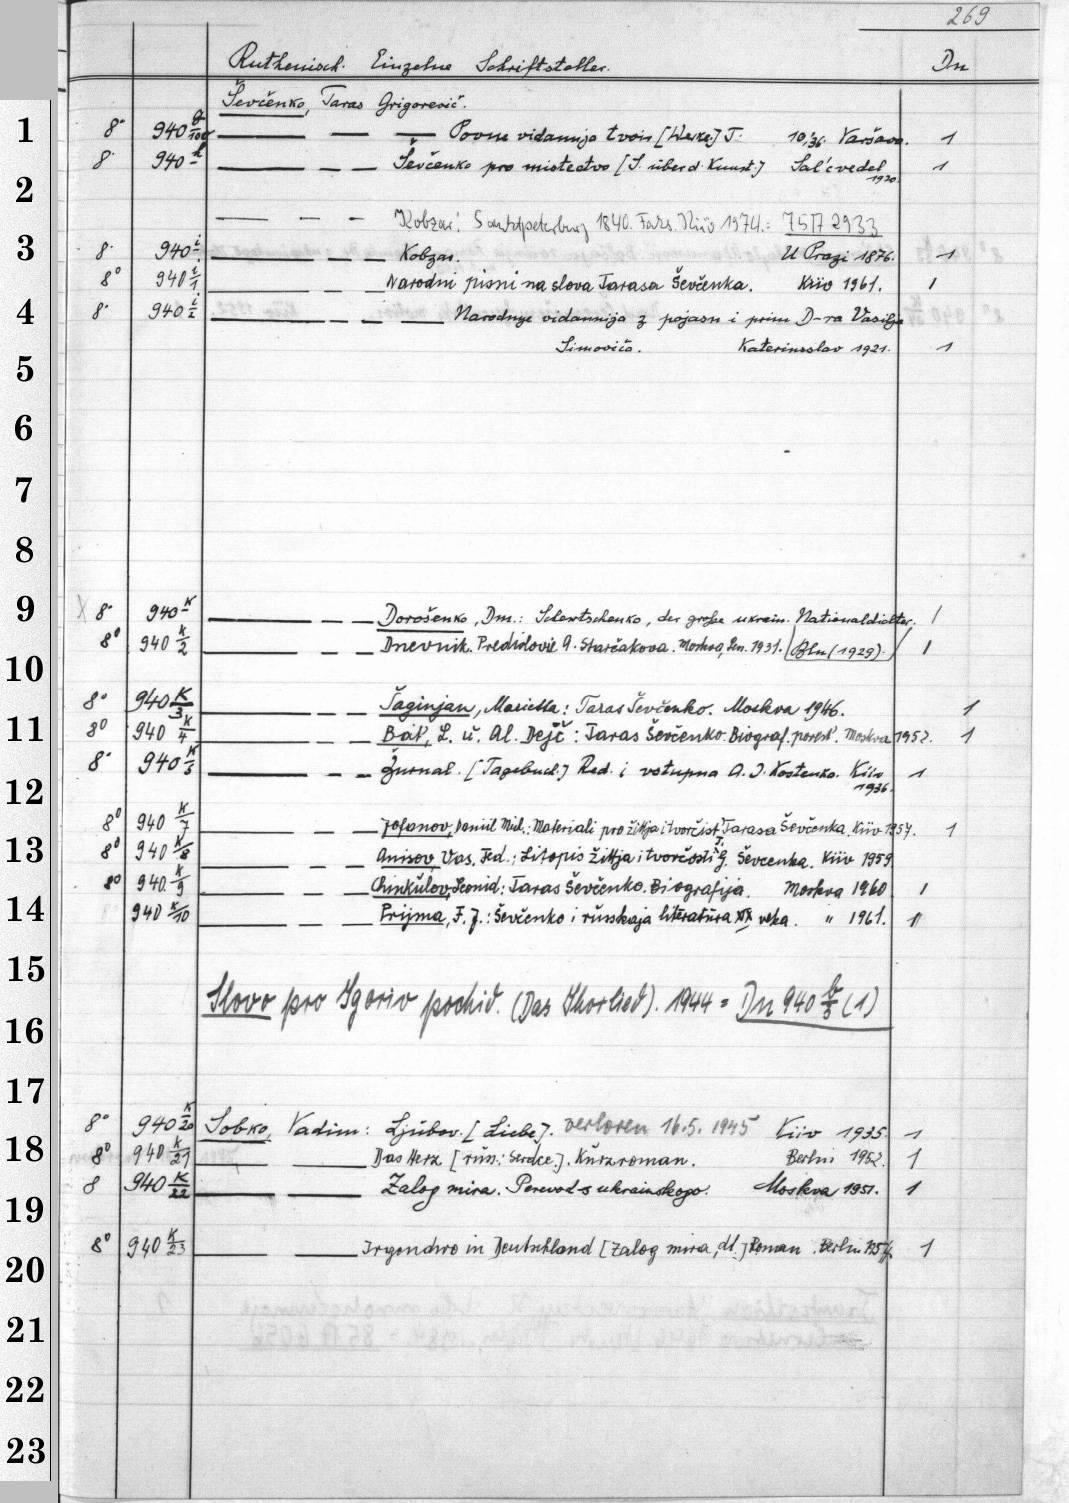 269
Ruthenisch. Einzelne Schriftsteller. Dn
Ševčenko, Taras Grigorevič.
1 8° 940 g/100 — — — Povne vidannja tvoriv [Werke] T. 10,36 Varšava. 1
8° 940 h — — — Ševčenko pro mistectvo [S. über d. Kunst.] Sal'cvedel 1920. 1
2
— — — 'Kobzar'. Sanktpeterburg 1840. Faks. Kiiv 1974.: 75 A 2933
3 8° 940 i — — — Kobzar. U Prazi 1876. 1
8° 940 i/1 — — — Narodni pisni na slova Tarasa Ševčenka. Kiiv 1961. 1
4 8° 940 i/2 — — — Narodnje vidannija z pojasn i prim D-ra Vasilja
Simoviča. Katerinoslav 1921. 1
5
6
7
8
9 8° 940 K — — — Dorošenko, Dm.: Schewtschenko, der große ukrain. Nationaldichter. 1
8° 940 K/2 — — — Dnevnik. Predislovie A. Starčakova. Moskva, Len. 1931. Bln (1929). 1
10
8° 940 K/3 — — — Šaginjan, Marietta: Taras Ševčenko. Moskva 1946. 1
11 8° 940 K/4 — — — Bat', L. u. Al. Dejč: Taras Ševčenko. Biograf. povest'. Moskva 1952. 1
8° 940 K/5 — — — Žurnal. [Tagebuch.] Red. i vstupna A. I. Kostenko. Kiiv 1936. 1
12
8° 940 K/7 — — — Jofanov, Daniil Mich.: Materiali pro žittja i tvorčist' Tarasa Ševčenka. Kiiv 1957. 1
13 8° 940 K/8 — — — Anisov, Vas. Fed.: Litopis žittja i tvorčosti T. G. Ševčenka. Kiiv 1959
8° 940 K/9 — — — Chinkulov, Leonid: Taras Ševčenko. Biografija. Moskva 1960 1
14 940 K/10 — — — Prijma, F. J.: Ševčenko i russkaja literatura XIX veka. " 1961. 1
15
Slovo pro Igoriv pochid. (Das Igorlied). 1944 = Dn 940 b/3 (1)
16
17
8° 940 K/20 Sobko, Vadim: Ljubov. [Liebe]. verloren 16.5.1945 Kiiv 1935. 1
18 8° 940 K/21 — — Das Herz [russ.: Serdce.]. Kurzroman. Berlin 1952. 1
8 940 K/22 — — Zalog mira. Perevod s ukrainskogo. Moskva 1951. 1
19
8° 940 K/23 — — Irgendwo in Deutschland [Zalog mira, dt.] Roman. Berlin 1954. 1
20
21
22
23